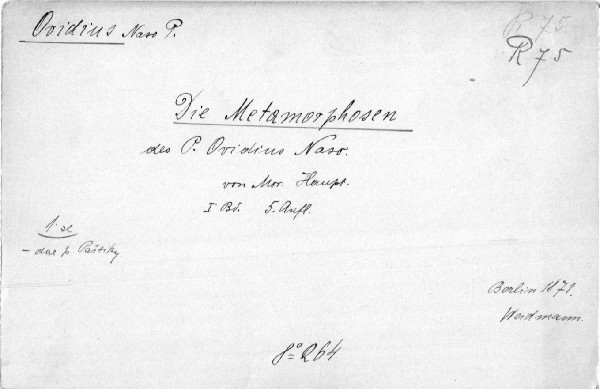 Ovidius Naso P.
R 75
R 75
Die Metamorphosen
des P. Ovidius Naso.
von Mor. Haupt.
I Bd. 5. Aufl.
1 sv
- dar p. Paštiky.
Berlin 1871.
Weidmann.
8° 264